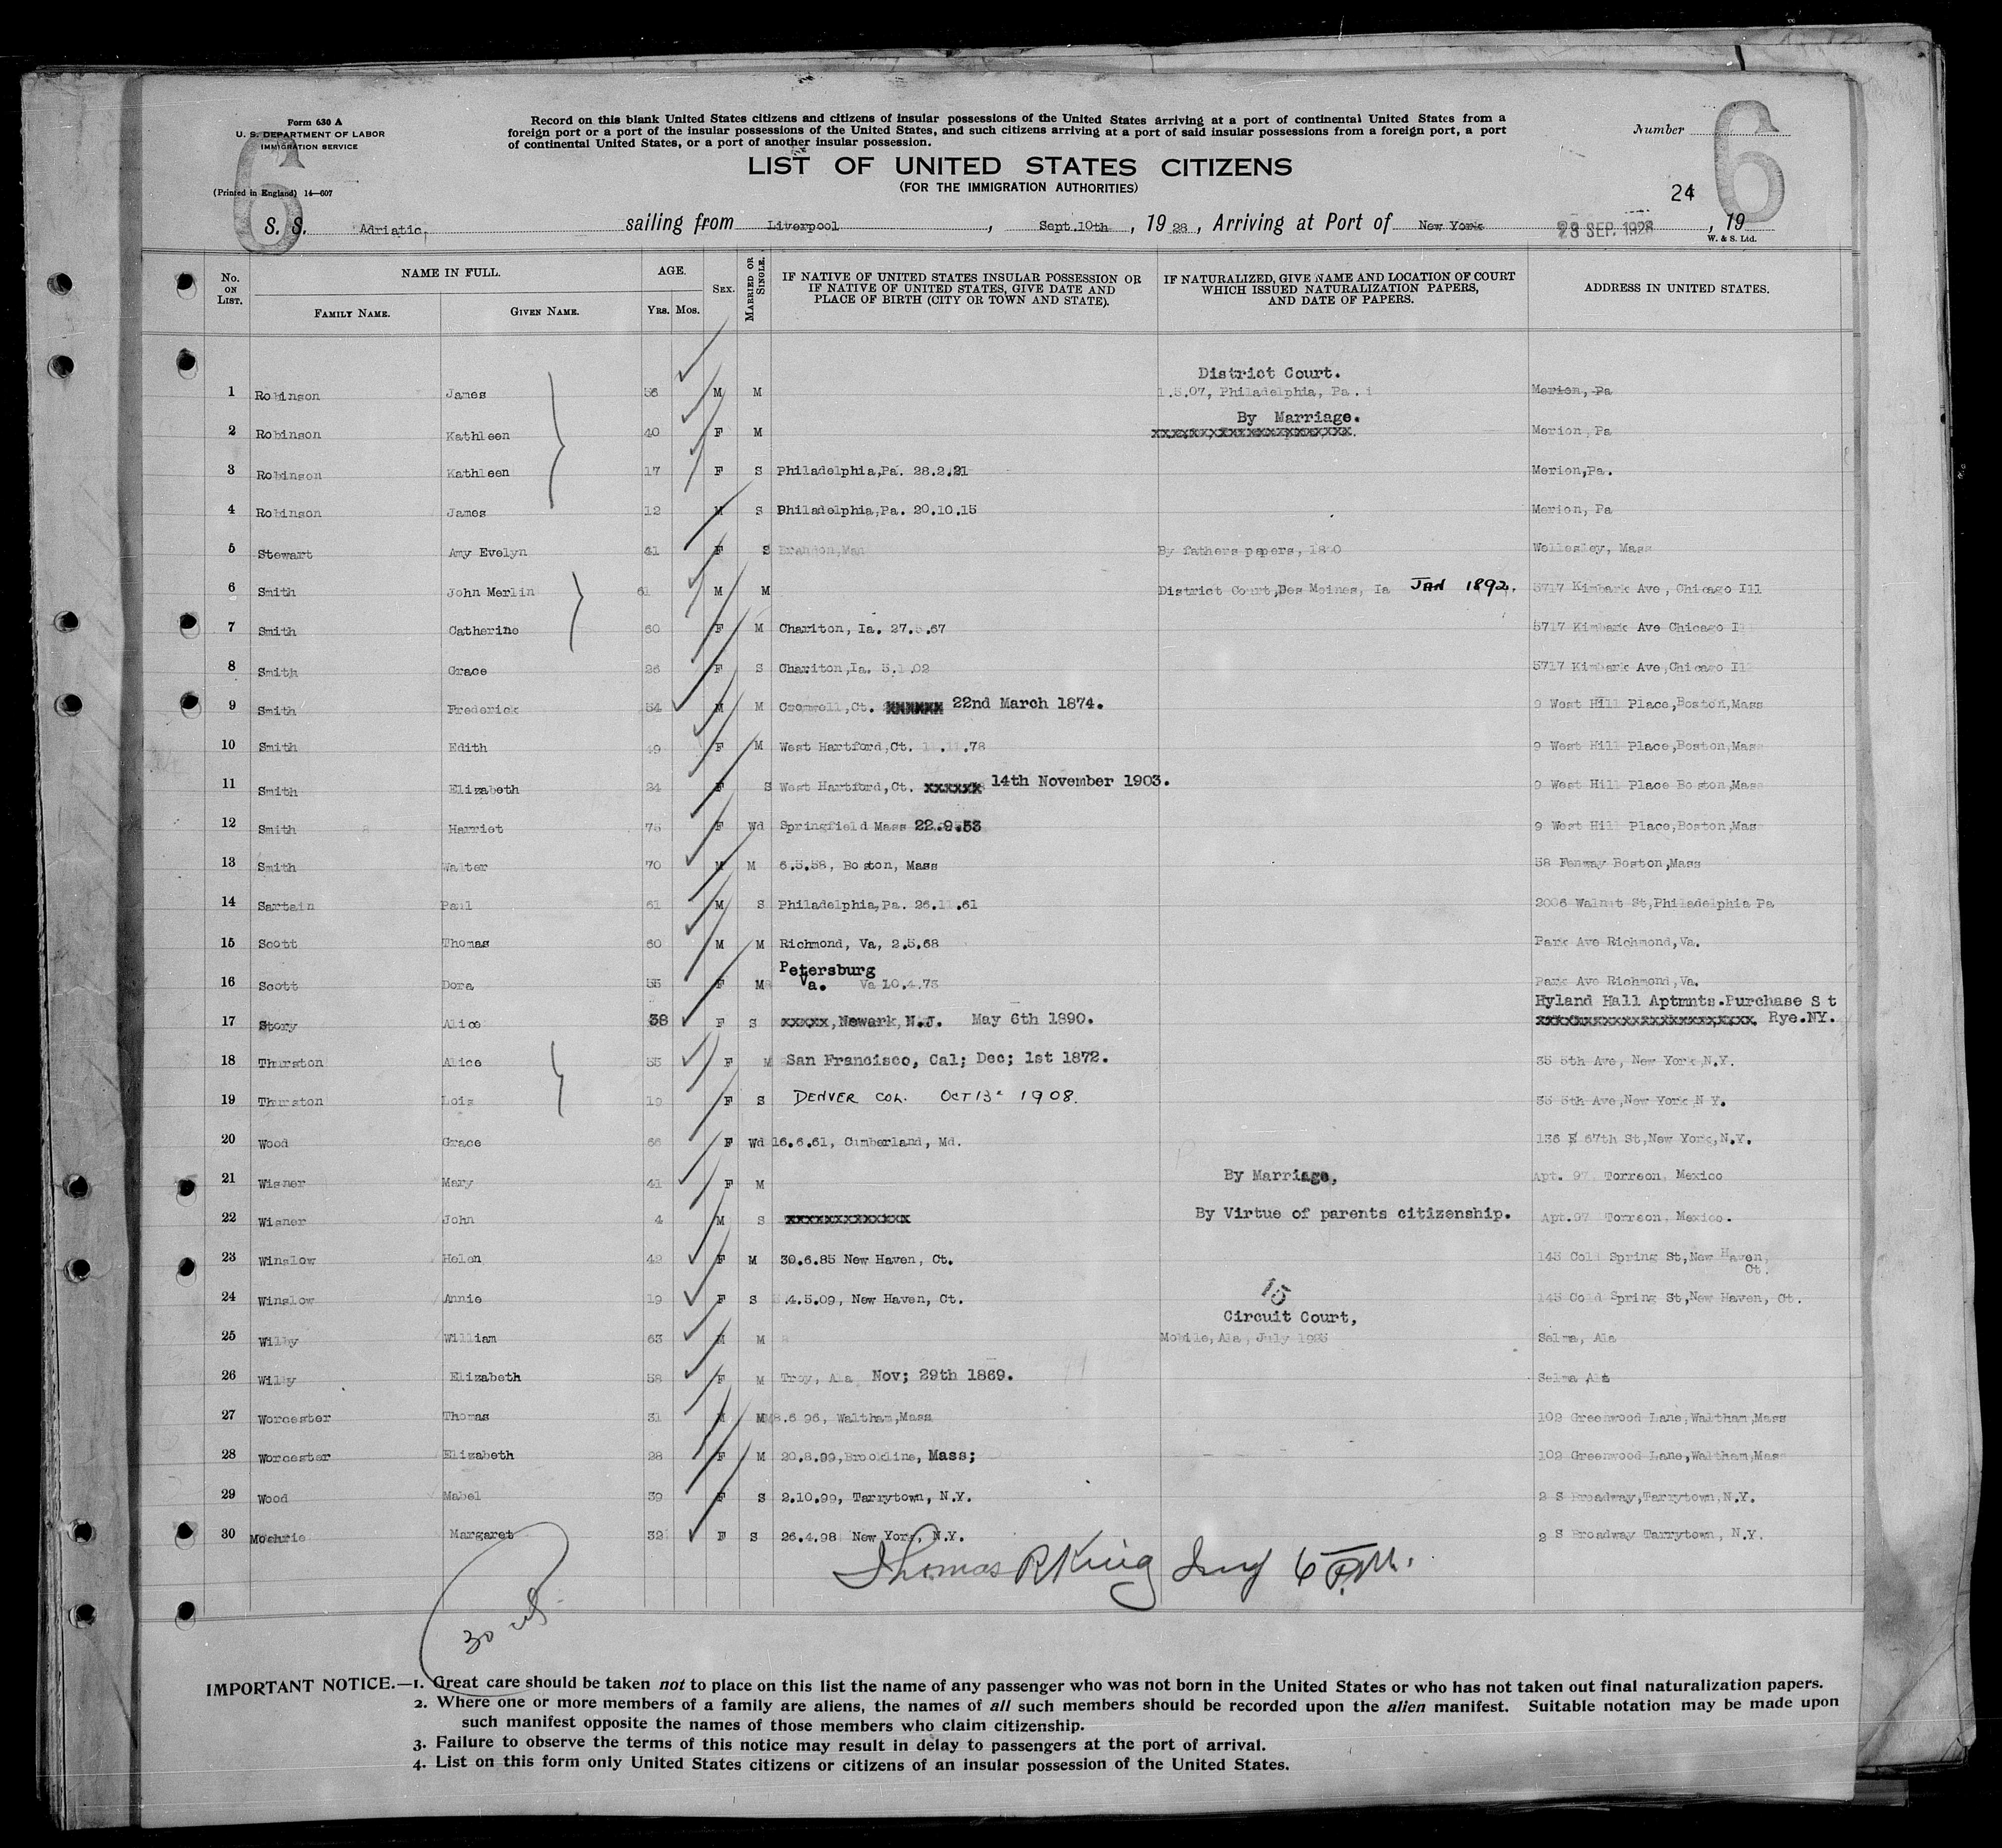 Form 630 A
U. S. DEPARTMENT OF LABOR
IMMIGRATION SERVICE
(Printed in England) 14—607
6
Record on this blank United States citizens and citizens of insular possessions of the United States arriving at a port of continental United States from a
foreign port or a port of the insular possessions of the United States, and such citizens arriving at a port of said insular possessions from a foreign port, a port
of continental United States, or a port of another insular possession.
Number 6
LIST OF UNITED STATES CITIZENS
(FOR THE IMMIGRATION AUTHORITIES)
24
S. S. Adriatic, sailing from Liverpool, Sept.10th, 1928, Arriving at Port of New York SEP. 1928, 19
W. & S. Ltd.
No. ON LIST. NAME IN FULL. FAMILY NAME. GIVEN NAME. AGE. YRS. MOS. SEX. MARRIED OR SINGLE. IF NATIVE OF UNITED STATES INSULAR POSSESSION OR IF NATIVE OF UNITED STATES, GIVE DATE AND PLACE OF BIRTH (CITY OR TOWN AND STATE). IF NATURALIZED, GIVE NAME AND LOCATION OF COURT WHICH ISSUED NATURALIZATION PAPERS, AND DATE OF PAPERS. ADDRESS IN UNITED STATES.
District Court.
1 Robinson James 56 M M 1.5.07, Philadelphia, Pa. Merion, Pa
By Marriage.
2 Robinson Kathleen 40 F M xxxxxxxxxxxxxxxxxxxxx. Merion, Pa
3 Robinson Kathleen 17 F S Philadelphia,Pa. 28.2. Merion,Pa.
4 Robinson James 12 M S Philadelphia,Pa. 20.10.15 Merion, Pa
5 Stewart Amy Evelyn 41 F S Brandon,Man By fathers papers, Wellesley, Mass
6 Smith John Merlin 61 M M District Court,Des Moines, Ia JAN 1892. 5717 Kimbark Ave, Chicago Ill
7 Smith Catherine 60 F M Chariton, Ia. 27.5.67 5717 Kimbark Ave Chicago
8 Smith Grace 26 F S Chariton,Ia. 02 5717 Kimbark Ave,Chicago Ill
9 Smith Frederick 54 M M Cromwell,Ct. xxxxxx 22nd March 1874. 9 West Hill Place,Boston,Mass
10 Smith Edith 49 F M West Hartford,Ct. 11.11.78 9 West Hill Place,Boston,Mass
11 Smith Elizabeth 24 F S West Hartford,Ct. xxxxxx 14th November 1903. 9 West Hill Place Boston,Mass
12 Smith Harriet 75 F Wd Springfield Mass 22.9.53 9 West Hill Place,Boston,Mas
13 Smith Walter 70 M M 6.5.58, Boston, Mass 58 Fenway Boston,Mass
14 Sartain Paul 61 M S Philadelphia,Pa. 26.11.61 2006 Walnut St,Philadelphia Pa
15 Scott Thomas 60 M M Richmond, Va, 2.5.68 Park Ave Richmond,Va.
Petersburg
16 Scott Dora 55 F M Va. Va 10.4.73 Park Ave Richmond,Va.
Hyland Hall Aptmnts.Purchase St
17 Story Alice 38 F S xxxxx,Newark,N.J. May 6th 1890. xxxxxxxxxxxxxxxxxxxxxxx Rye.NY.
18 Thurston Alice 55 F M San Francisco, Cal; Dec; 1st 1872. 35 5th Ave, New York,N.Y.
19 Thurston Lois 19 F S DENVER COL. OCT 13th 1908. 35 5th Ave,New York,N Y.
20 Wood Grace 66 F Wd 16.6.61, Cumberland, Md. 136 E 67th St,New York,N.Y.
21 Wisner Mary 41 F M By Marriage, Apt. 97 Torreon, Mexico
22 Wisner John 4 M S xxxxxxxxxxxxx By Virtue of parents citizenship. Apt.97 Torreon, Mexico.
23 Winslow Helen 42 F M 30.6.85 New Haven, Ct. 143 Cold Spring St,New Haven,
Ct.
24 Winslow Annie 19 F S 4.5.09, New Haven, Ct. 143 Cold Spring St,New Haven, Ct.
15
Circuit Court,
25 Wilby William 63 M M Mobile, Ala, July Selma, Ala
26 Wilby Elizabeth 58 F M Troy, Ala Nov; 29th 1869. Selma Ala
27 Worcester Thomas 31 M M 8.6 96, Waltham,Mass 102 Greenwood Lane,Waltham,Mass
28 Worcester Elizabeth 28 F M 20.8.99,Brookline, Mass; 102 Greenwood Lane,Waltham,Mass
29 Wood Mabel 39 F S 2.10.99, Tarrytown, N.Y. 2 S Broadway,Tarrytown,N.Y.
30 Mochrie Margaret 32 F S 26.4.98 New York, N.Y. 2 S Broadway Tarrytown, N.Y.
Thomas R King
30
IMPORTANT NOTICE.—1. Great care should be taken not to place on this list the name of any passenger who was not born in the United States or who has not taken out final naturalization papers.
2. Where one or more members of a family are aliens, the names of all such members should be recorded upon the alien manifest. Suitable notation may be made upon
such manifest opposite the names of those members who claim citizenship.
3. Failure to observe the terms of this notice may result in delay to passengers at the port of arrival.
4. List on this form only United States citizens or citizens of an insular possession of the United States.